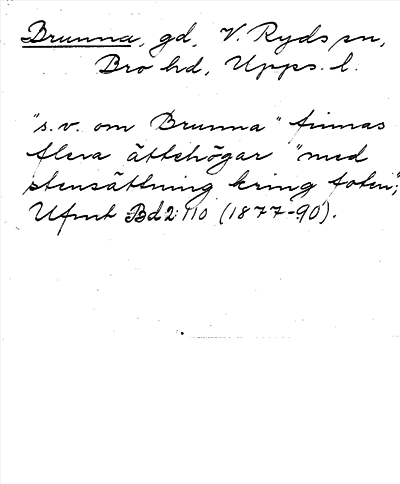 Brunna, gd, V. Ryds sn,
Bro hd, Upps. l.
"s.v. om Brunna" finnas
flera ättehögar "med
stensättning kring foten";
Ufmt Bd 2:110 (1877-90).